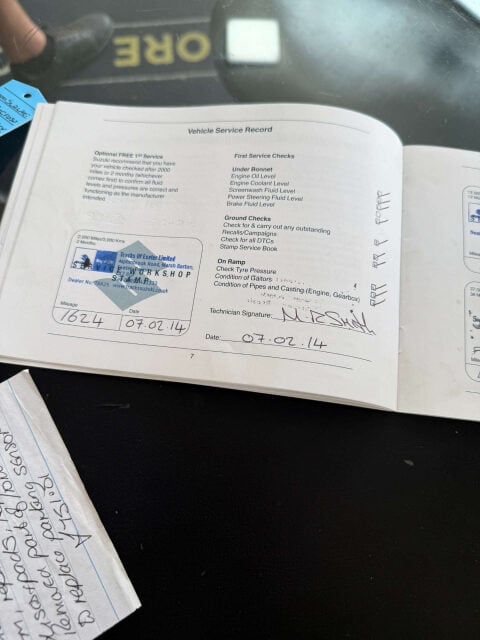 ORE
Vehicle Service Record
Optional FREE 1st Service
Suzuki recommend that you have
your vehicle checked after 2000
miles or 2 months (whichever
comes first) to confirm all fluid
levels and pressures are correct and
functioning as the manufacturer
intended.
First Service Checks
Under Bonnet
Engine Oil Level
Engine Coolant Level
Screenwash Fluid Level
Power Steering Fluid Level
Brake Fluid Level
Ground Checks
Check for & carry out any outstanding
Recalls/Campaigns
Check for all DTCs
Stamp Service Book
On Ramp
Check Tyre Pressure
Condition of Gaitors
Condition of Pipes and Casting (Engine, Gearbox)
2 Months
Exeter Limited
Road, Marsh Barton,
WORKSHOP
STAMP
Dealer No:
Mileage
Date
1624
07.02.14
Technician Signature: M.R.Smith
Date: 07.02.14
7
parking sensor
Removed
replace parking